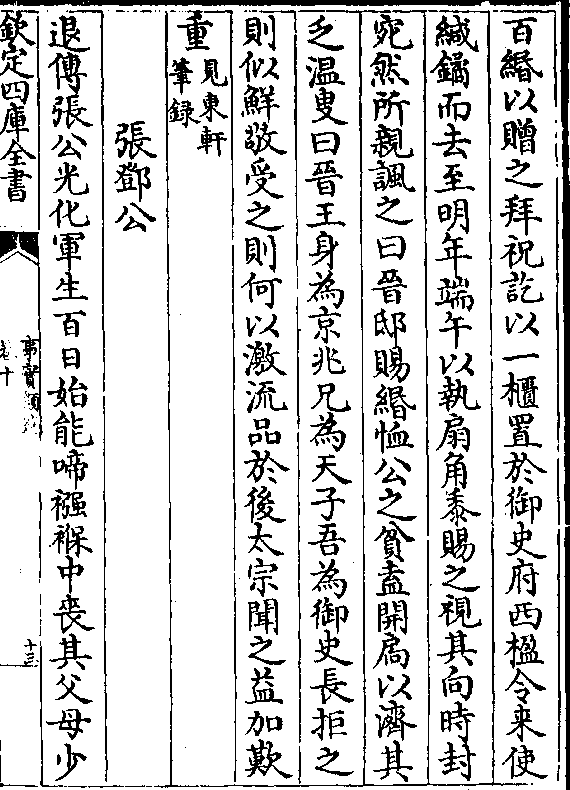 百緡以贈之拜祝訖以一櫃置於御史府西楹令来使
緘鐍而去至明年端午以執扇角黍賜之視其向時封
宛然所親諷之曰晉邸賜緡恤公之貧盍開扄以濟其
乏温叟曰晉王身為京兆尹兄為天子吾為御史長拒之
則似鮮敬受之則何以激流品於後太宗聞之益加歎
重
見東軒
筆錄
張鄧公
退傅張公光化軍生百日始能啼襁褓中喪其父母少
欽定四庫全書
卷十
十三